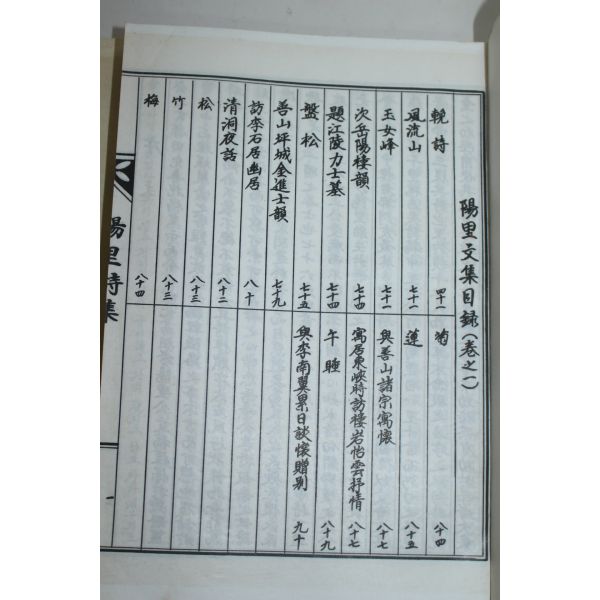 陽里文集目録（卷之一）
輓詩 四十一
風流山 七十一
玉女峰 七十一
次岳陽樓韻 七十四
題江陵力士墓 七十四
盤松 七十五
善山坪城金進士韻 七十九
訪李石居幽居 八十
清洞夜話 八十二
松 八十三
竹 八十三
梅 八十四
菊 八十四
蓮 八十五
與善山諸宗寓懷 八十七
寓居東峽時訪棲岩怡雲抒情 八十七
午睡 八十九
與李南翼累日談懷贈別 九十
陽里詩集
一